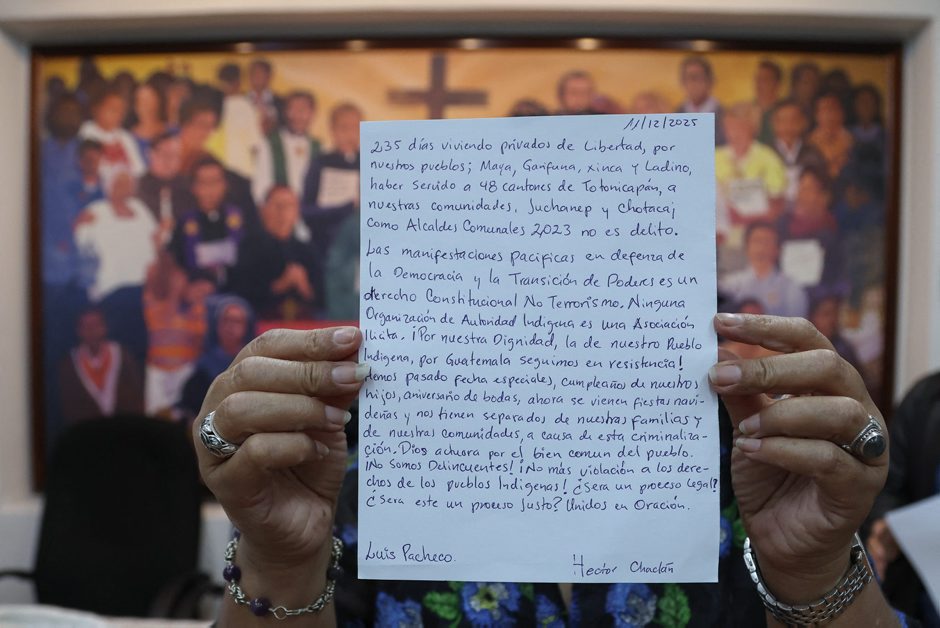 11/12/2025
235 días viviendo privados de Libertad, por
nuestros pueblos; Maya, Garífuna, xinca y Ladino,
haber servido a 48 cantones de Totonicapán, a
nuestras comunidades, Juchanep y Chotacaj
como Alcaldes Comunales 2,023 no es delito.
Las manifestaciones pacíficas en defenza de
la Democracia y la Transición de Poderes es un
derecho Constitucional No Terrorismo. Ninguna
Organización de Autoridad Indígena es una Asociación
Ilícita. ¡Por nuestra Dignidad, la de nuestro Pueblo
Indígena, por Guatemala seguimos en resistencia!
Hemos pasado fecha especiales, cumpleaños de nuestros
hijos, aniversario de bodas, ahora se vienen fiestas navi-
deñas y nos tienen separados de nuestras familias y
de nuestras comunidades, a causa de esta criminaliza-
ción. Dios actuara por el bien comun del pueblo.
¡No Somos Delincuentes! ¡No más violación a los dere-
chos de los pueblos Indígenas! ¿Sera un proceso Legal?
¿Sera este un proceso Justo? Unidos en Oración.
Luis Pacheco.
Hector Chaclán